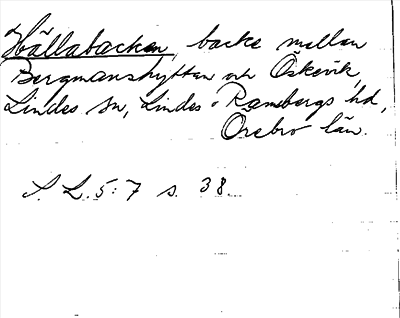 Hällabacken, backe mellan
Bergmanshyttan och Öskevik,
Lindes sn, Lindes o Ramsbergs hd,
Örebro län.
S. L. 5:7 s. 38